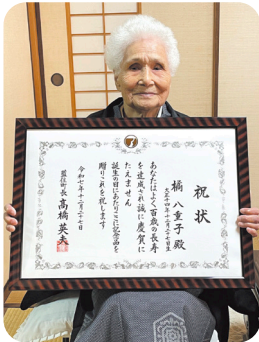 祝状
橘 八重子 殿
大正十四年十二月二十七日生
あなたはよく百歳の長寿
を達成され誠に慶賀に
たえません
誕生の日にあたりここに記念品を
贈りこれを祝します
令和七年十二月二十七日
藍住町長 高橋英夫